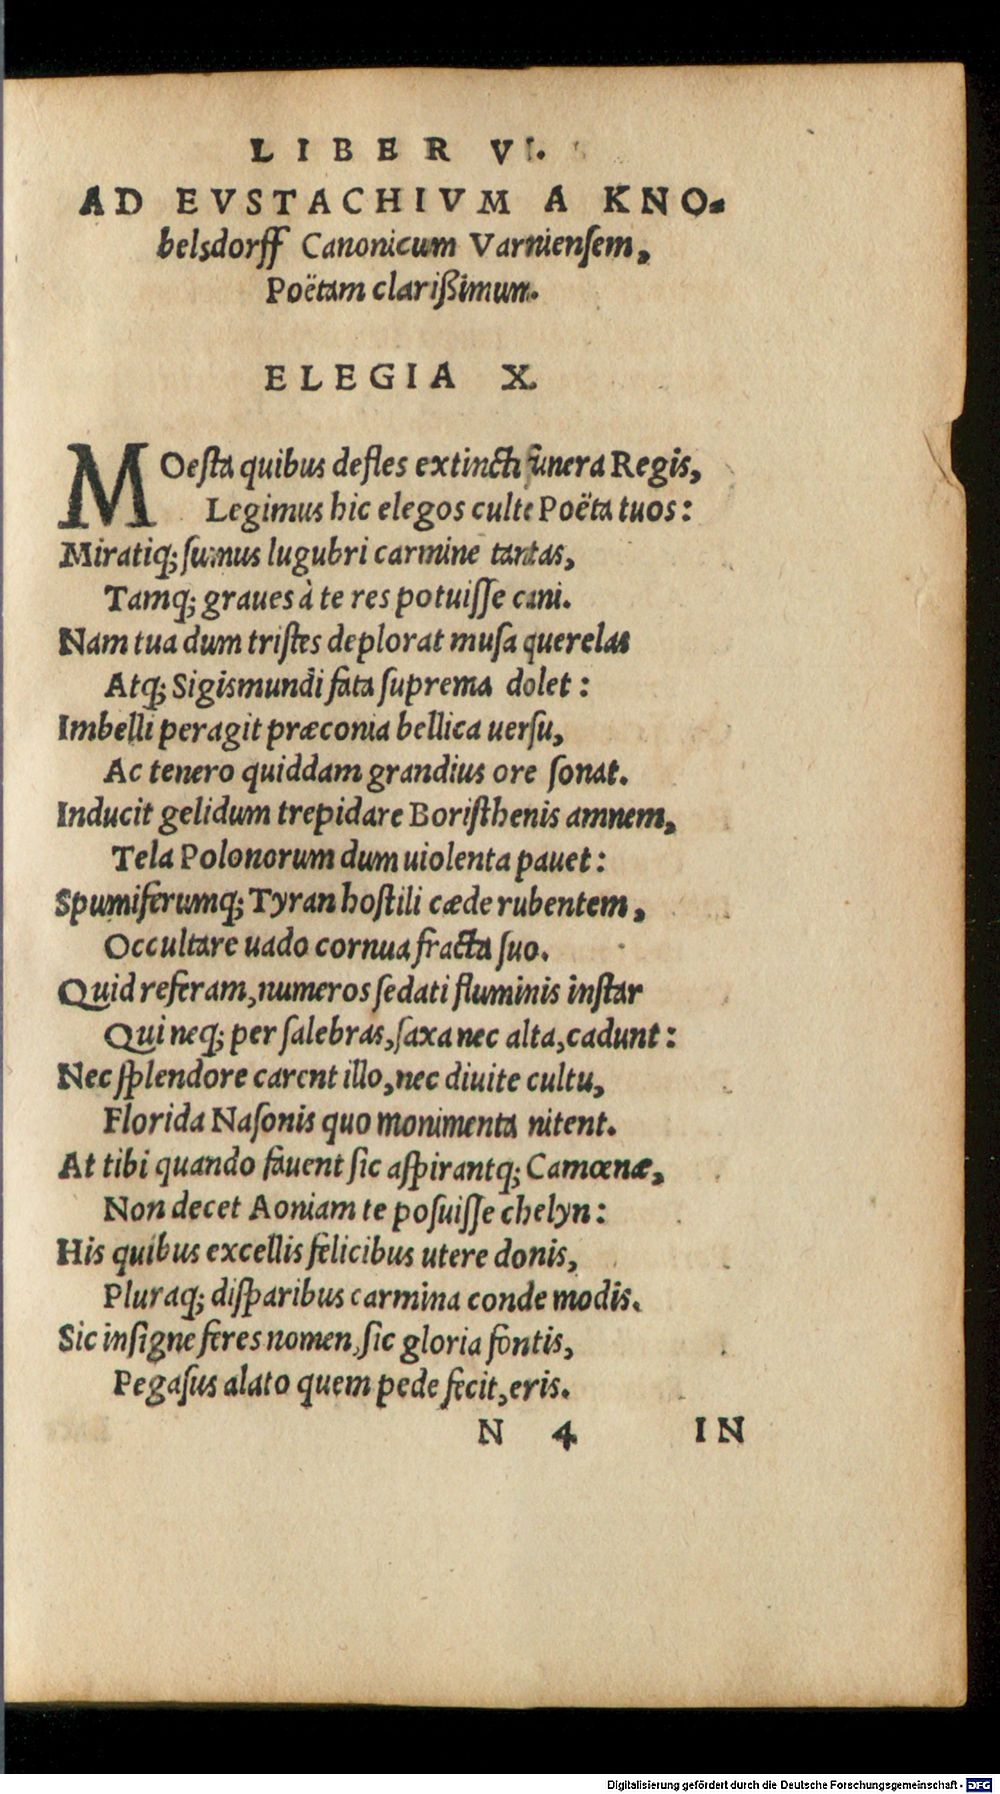 LIBER VI.
AD EVSTACHIVM A KNO-
belsdorff Canonicum Varnienſem,
Poëtam clarißimum.
ELEGIA X.
MOeſta quibus defles extincti funera Regis,
Legimus hic elegos culte Poëta tuos:
Miratiq; ſumus lugubri carmine tantas,
Tamq; graues à te res potuiſſe cani.
Nam tua dum triſtes deplorat muſa querelas
Atq; Sigismundi fata ſuprema dolet:
Imbelli peragit præconia bellica uerſu,
Ac tenero quiddam grandius ore ſonat.
Inducit gelidum trepidare Boriſthenis amnem,
Tela Polonorum dum uiolenta pauet:
Spumiferumq; Tyran hoſtili cæde rubentem,
Occultare uado cornua fracta ſuo.
Quid referam, numeros ſedati fluminis inſtar
Qui neq; per ſalebras, ſaxa nec alta, cadunt:
Nec ſplendore carent illo, nec diuite cultu,
Florida Naſonis quo monimenta nitent.
At tibi quando fauent ſic aſpirantq; Camœnæ,
Non decet Aoniam te poſuiſſe chelyn:
His quibus excellis felicibus utere donis,
Pluraq; diſparibus carmina conde modis.
Sic inſigne feres nomen, ſic gloria fontis,
Pegaſus alato quem pede fecit, eris.
N 4 IN
Digitalisierung gefördert durch die Deutsche Forschungsgemeinschaft - DFG